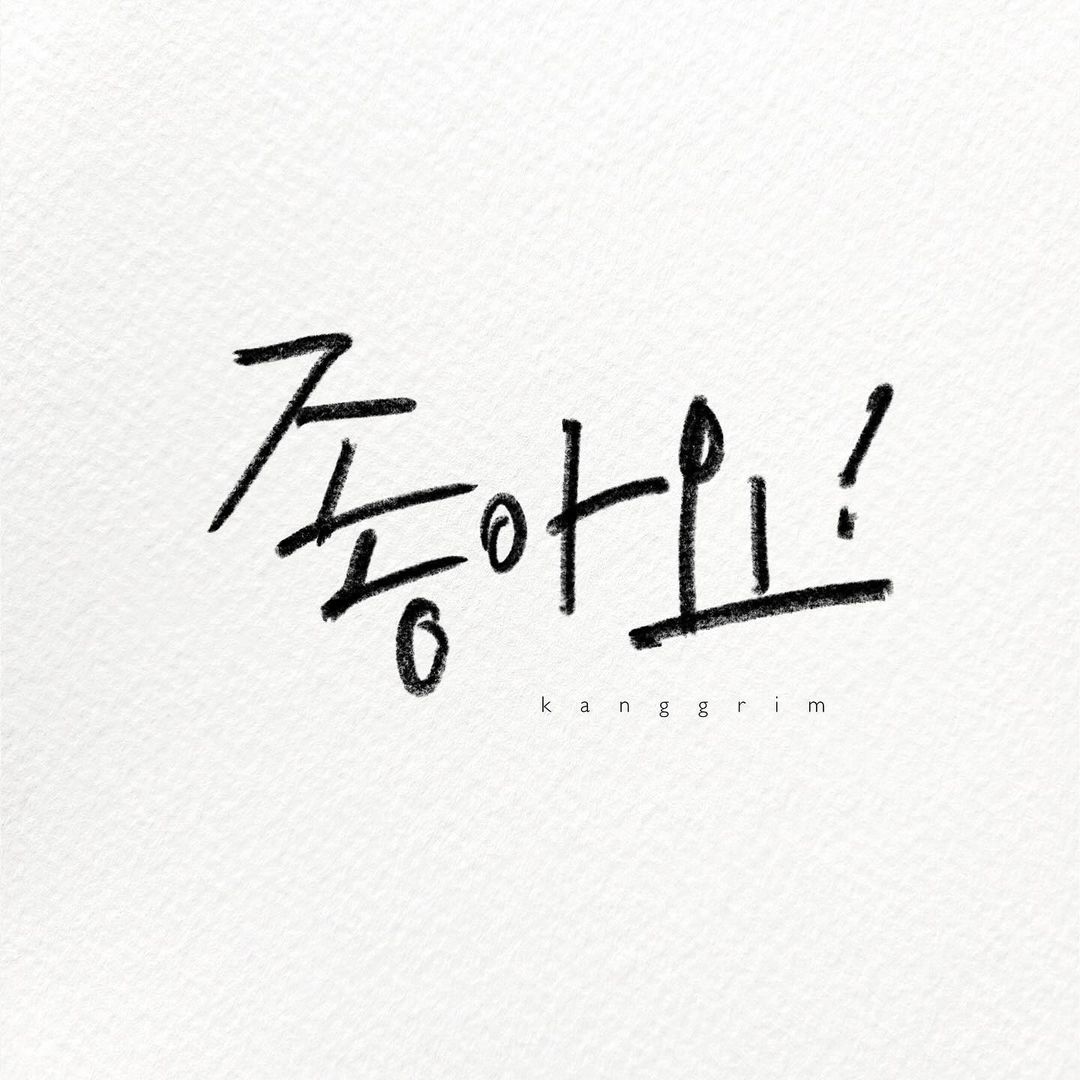 좋아요!
kanggrim